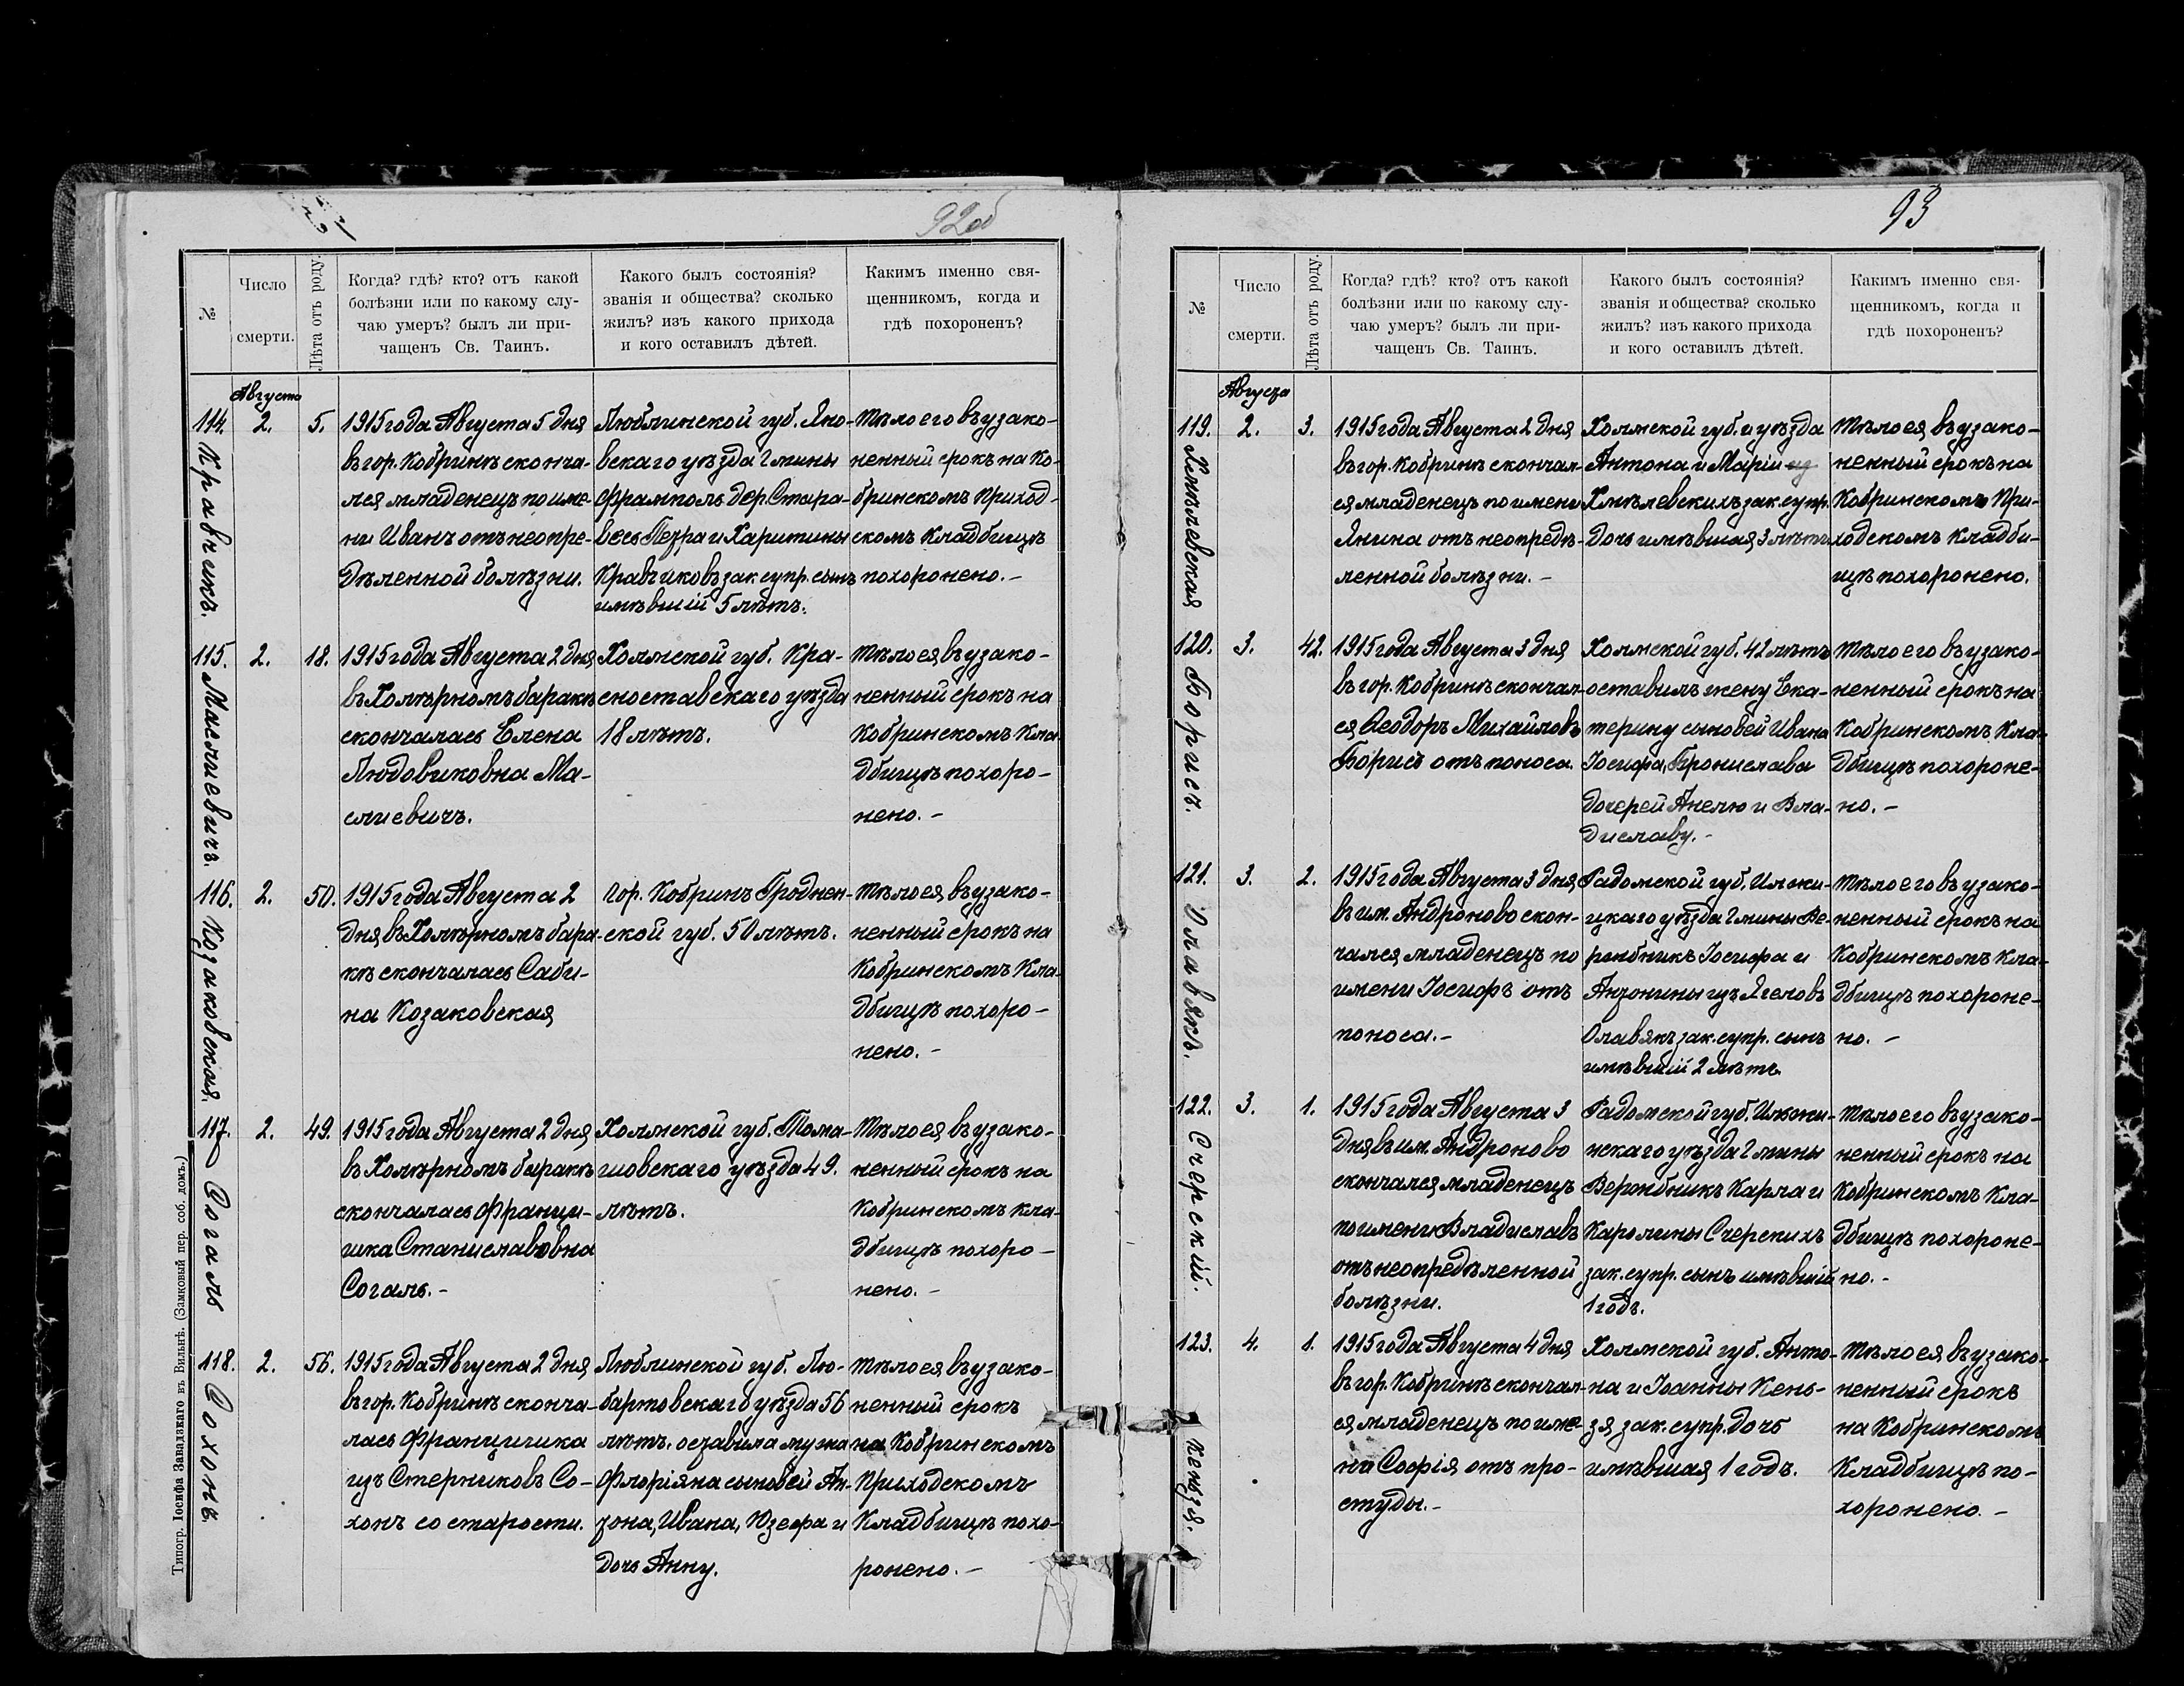 92об
№
Число
смерти.
Лѣта отъ роду.
Когда? гдѣ? кто? отъ какой
болѣзни или по какому слу-
чаю умеръ? былъ ли при-
чащенъ Св. Таинъ.
Какого былъ состоянія?
званія и общества? сколько
жилъ? изъ какого прихода
и кого оставилъ дѣтей.
Какимъ именно свя-
щенникомъ, когда и
гдѣ похороненъ?
Августа
114.
Кравчикъ.
2.
5.
1915 года Августа 5 дня
въ гор. Кобринѣ сконча-
лся младенецъ по име-
ни Иванъ отъ неопре-
дѣленной болѣзни.
Люблинской губ. Яно-
вскаго уѣзда гмины
Фрамполь дер. Стара-
весь Петра и Харитины
Кравчиковъ зак. супр. сынъ
имѣвшій 5 лѣтъ.
тѣло его въ узако-
ненный срокъ на Ко-
бринскомъ Приход-
скомъ Кладбищѣ
похоронено. –
115.
Маслиевичъ.
2.
18.
1915 года Августа 2 дня
въ Холѣрномъ баракѣ
скончалась Елена
Людовиковна Ма-
слиевичъ.
Холмской губ. Кра-
сноставскаго уѣзда
18 лѣтъ.
тѣло ея въ узако-
ненный срокъ на
Кобринскомъ Кла-
дбищѣ похоро-
нено. –
116.
Козаковская.
2.
50.
1915 года Августа 2
дня въ Холѣрномъ бара-
кѣ скончалась Саби-
на Козаковская
гор. Кобринъ Гроднен-
ской губ. 50 лѣтъ.
тѣло ея въ узако-
ненный срокъ на
Кобринскомъ Кла-
дбищѣ похоро-
нено. –
117.
Согаль
2.
49.
1915 года Августа 2 дня
въ Холѣрномъ баракѣ
скончалась Франци-
шка Станиславовна
Согаль. –
Холмской губ. Тома-
шовскаго уѣзда 49.
лѣтъ.
Тѣло ея въ узако-
ненный срокъ на
Кобринскомъ Кла-
дбищѣ похоро-
нено. –
118.
Сохонъ.
2.
56.
1915 года Августа 2 дня
въ гор. Кобринѣ сконча-
лась Францишка
изъ Стерниковъ Со-
хонъ со старости.
Люблинской губ. Лю-
бартовскаго уѣзда 56
лѣтъ. оставила мужа
Флоріяна сыновей Ан-
тона, Ивана, Юзефа и
дочь Анну.
тѣло ея въ узако-
ненный срокъ
на Кобринскомъ
Приходскомъ
Кладбищѣ похо-
ронено. –
Типогр. Іосифа Завадзкаго въ Вильнѣ. (Замковый пер. соб. домъ.)
93
№
Число
смерти.
Лѣта отъ роду.
Когда? гдѣ? кто? отъ какой
болѣзни или по какому слу-
чаю умеръ? былъ ли при-
чащенъ Св. Таинъ.
Какого былъ состоянія?
званія и общества? сколько
жилъ? изъ какого прихода
и кого оставилъ дѣтей.
Какимъ именно свя-
щенникомъ, когда и
гдѣ похороненъ?
Августа
119.
Хмѣлевская
2.
3.
1915 года Августа 2 дня
въ гор. Кобринѣ скончал-
ся младенецъ по имени
Янина отъ неопредѣ-
ленной болѣзни. –
Холмской губ. и уѣзда
Антона и Маріи
Хмѣлевскихъ зак. супр.
дочь имѣвшая 3 лѣтъ
тѣло ея въ узако-
ненный срокъ на
Кобринскомъ При-
ходскомъ Кладби-
щѣ похоронено.
120.
Борисъ.
3.
42.
1915 года Августа 3 дня
въ гор. Кобринѣ скончал-
ся Ѳеодоръ Михайловъ
Борисъ отъ поноса.
Холмской губ. 42 лѣтъ
оставилъ жену Ека-
терину сыновей Ивана
Іосифа, Бронислава
дочерей Анелю и Вла-
диславу. –
тѣло его въ узако-
ненный срокъ на
Кобринскомъ Кла-
дбищѣ похороне-
но. –
121.
Олавякъ.
3.
2.
1915 года Августа 3 дня
въ им. Андроново скон-
чался младенецъ по
имени Іосифъ отъ
поноса. –
Радомской губ. Илжи-
цкаго уѣзда гмины Ве-
ржбникъ Іосифа и
Антонины изъ Ягеловъ
Олавякъ зак. супр. сынъ
имѣвшій 2 лѣтъ
тѣло его въ узако-
ненный срокъ на
Кобринскомъ Кла-
дбищѣ похороне-
но. –
122.
Счерскій.
3.
1.
1915 года Августа 3
дня въ им. Андроново
скончался младенецъ
по имени Владиславъ
отъ неопредѣленной
болѣзни.
Радомской губ. Илжи-
нскаго уѣзда гмины
Вержбникъ Карла и
Каролины Счерскихъ
зак. супр. сынъ имѣвшій
1 годъ.
тѣло его въ узако-
ненный срокъ на
Кобринскомъ Кла-
дбищѣ похороне-
но. –
123.
Кензя.
4.
1.
1915 года Августа 4 дня
въ гор. Кобринѣ скончал-
ся младенецъ по име-
ни Софія отъ про-
студы. –
Холмской губ. Анто-
на и Іоанны Кень-
зя зак. супр. дочь
имѣвшая 1 годъ.
тѣло ея въ узако-
ненный срокъ
на Кобринскомъ
Кладбищѣ по-
хоронено. –